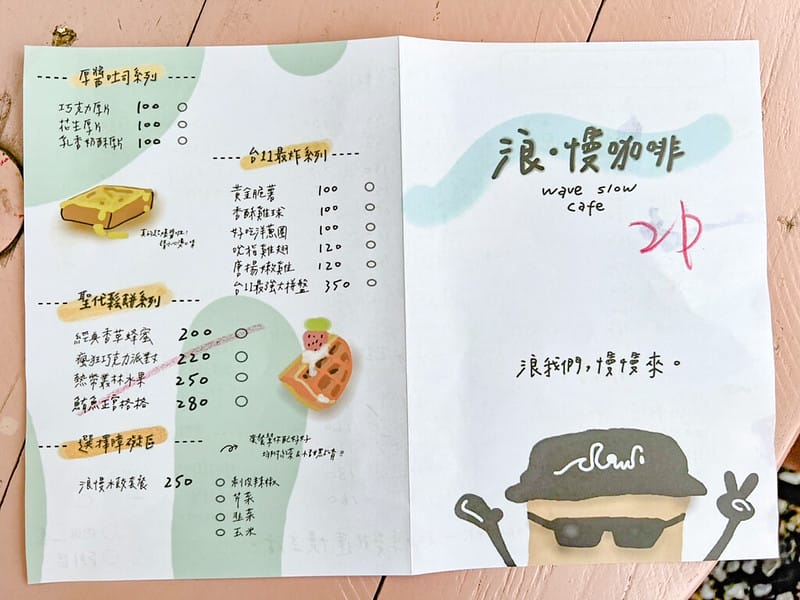 厚醬吐司系列
巧克力厚片 100
花生厚片 100
乳香奶酥厚片 100
台11最炸系列
黃金脆薯 100
香酥雞球 100
好吃洋蔥圈 100
吮指雞翅 120
唐揚嫩雞 120
台11最強大拼盤 350
聖代鬆餅系列
經典香草蜂蜜 200
瘋狂巧克力派對 220
熱帶叢林水果 250
鮪魚正宮格格 280
選擇障礙區
浪慢水餃套餐 250
剝皮辣椒
芹菜
韭菜
玉米
浪。慢咖啡
wave slow
cafe
2P
浪我們,慢慢來。